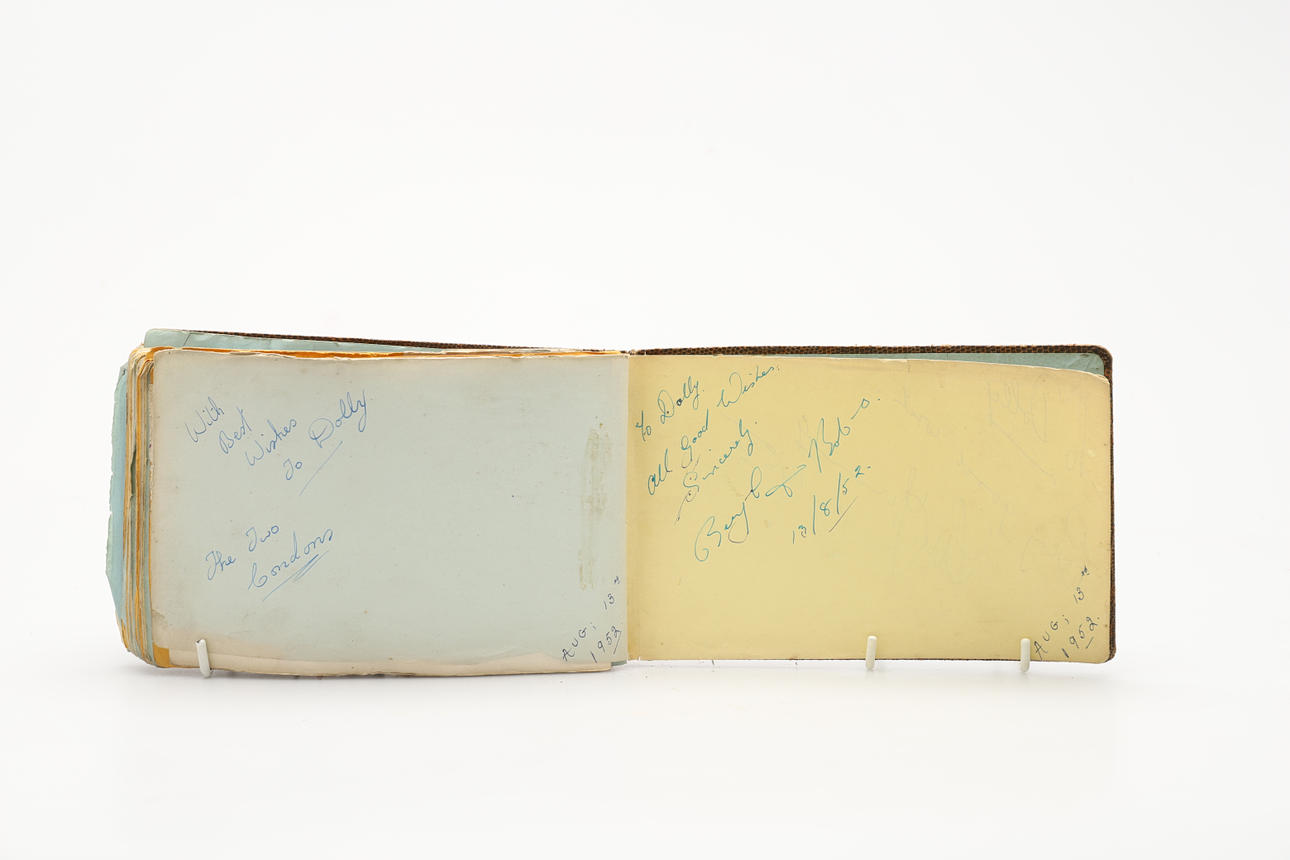 With
Best
Wishes
To Dolly.
The Two
Condons
AUG; 13th
1952
To Dolly.
All Good Wishes.
Sincerely.
Beryl & Bob
13/8/52.
AUG; 13th
1952.